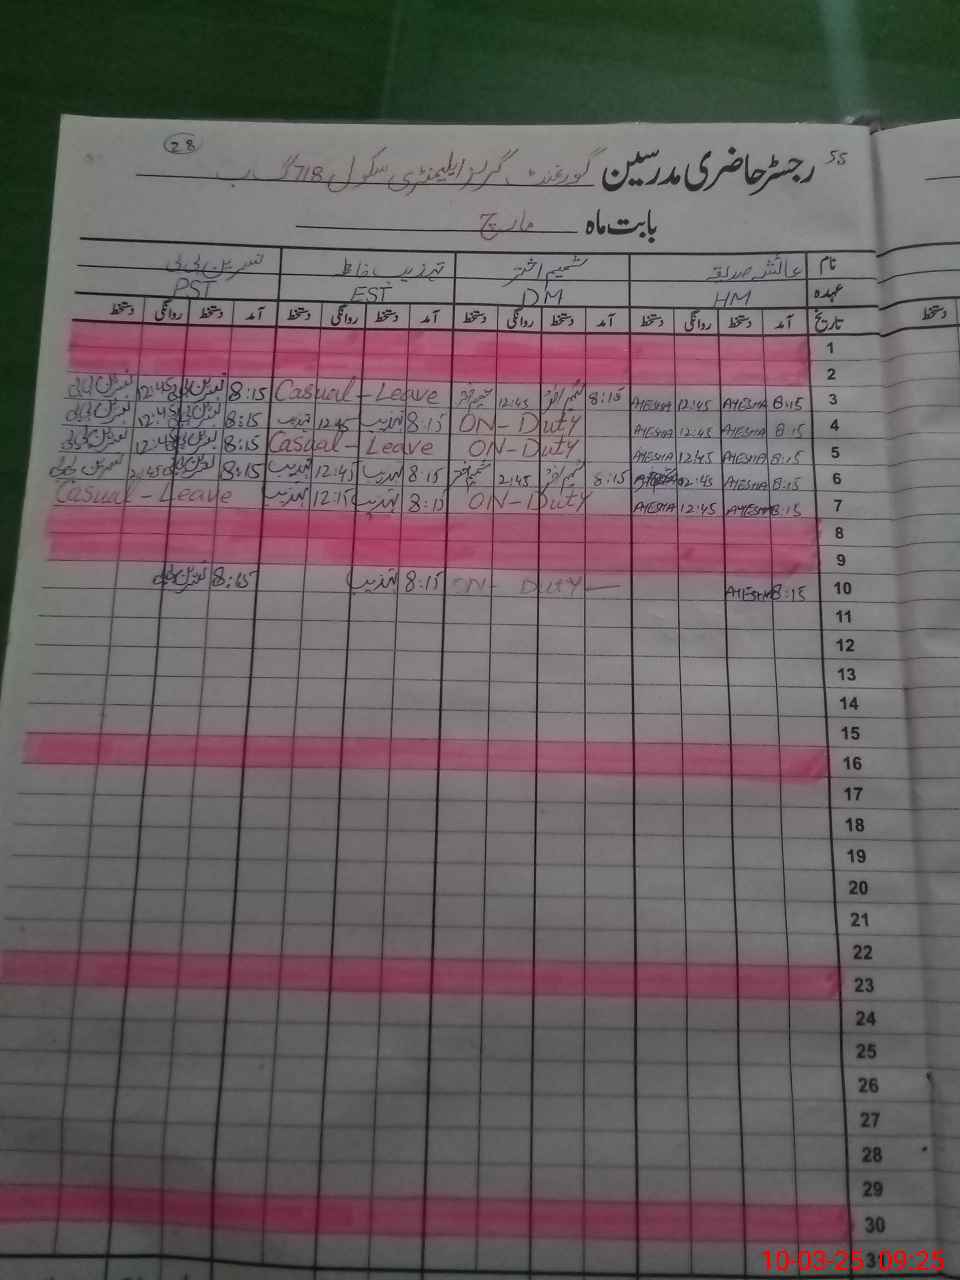 28
55
رجسٹر حاضری مدرسین گورنمنٹ گرلز ایلیمنٹری سکول 718 گ ب
بابت ماہ مارچ
نام عائشہ صدیقہ شمیم اختر تہذیب فاطمہ نسرین بی بی
عہدہ HM DM EST PST
تاریخ آمد دستخط روانگی دستخط آمد دستخط روانگی دستخط آمد دستخط روانگی دستخط آمد دستخط روانگی دستخط
دستخط
1
2
3 8:15 AYESHA 12:45 AYESHA 8:15 شمیم اختر 12:45 شمیم اختر Casual - Leave 8:15 نسرین بی بی 12:45 نسرین بی بی
4 8:15 AYESHA 12:45 AYESHA ON-Duty 8:15 تہذیب 12:45 تہذیب 8:15 نسرین بی بی 12:45 نسرین بی بی
5 8:15 AYESHA 12:45 AYESHA ON-Duty Casual - Leave 8:15 نسرین بی بی 12:45 نسرین بی بی
6 8:15 AYESHA 12:45 8:15 شمیم اختر 2:45 شمیم اختر 8:15 تہذیب 12:45 تہذیب 8:15 نسرین بی بی نسرین بی بی
7 8:15 AYESHA 12:45 AYESHA ON-Duty 8:15 تہذیب 12:15 تہذیب Casual - Leave
8
9
10 8:15 AYESHA ON- Duty — 8:15 تہذیب 8:15 نسرین بی بی
11
12
13
14
15
16
17
18
19
20
21
22
23
24
25
26
27
28
29
30
31
10-03-25 09:25